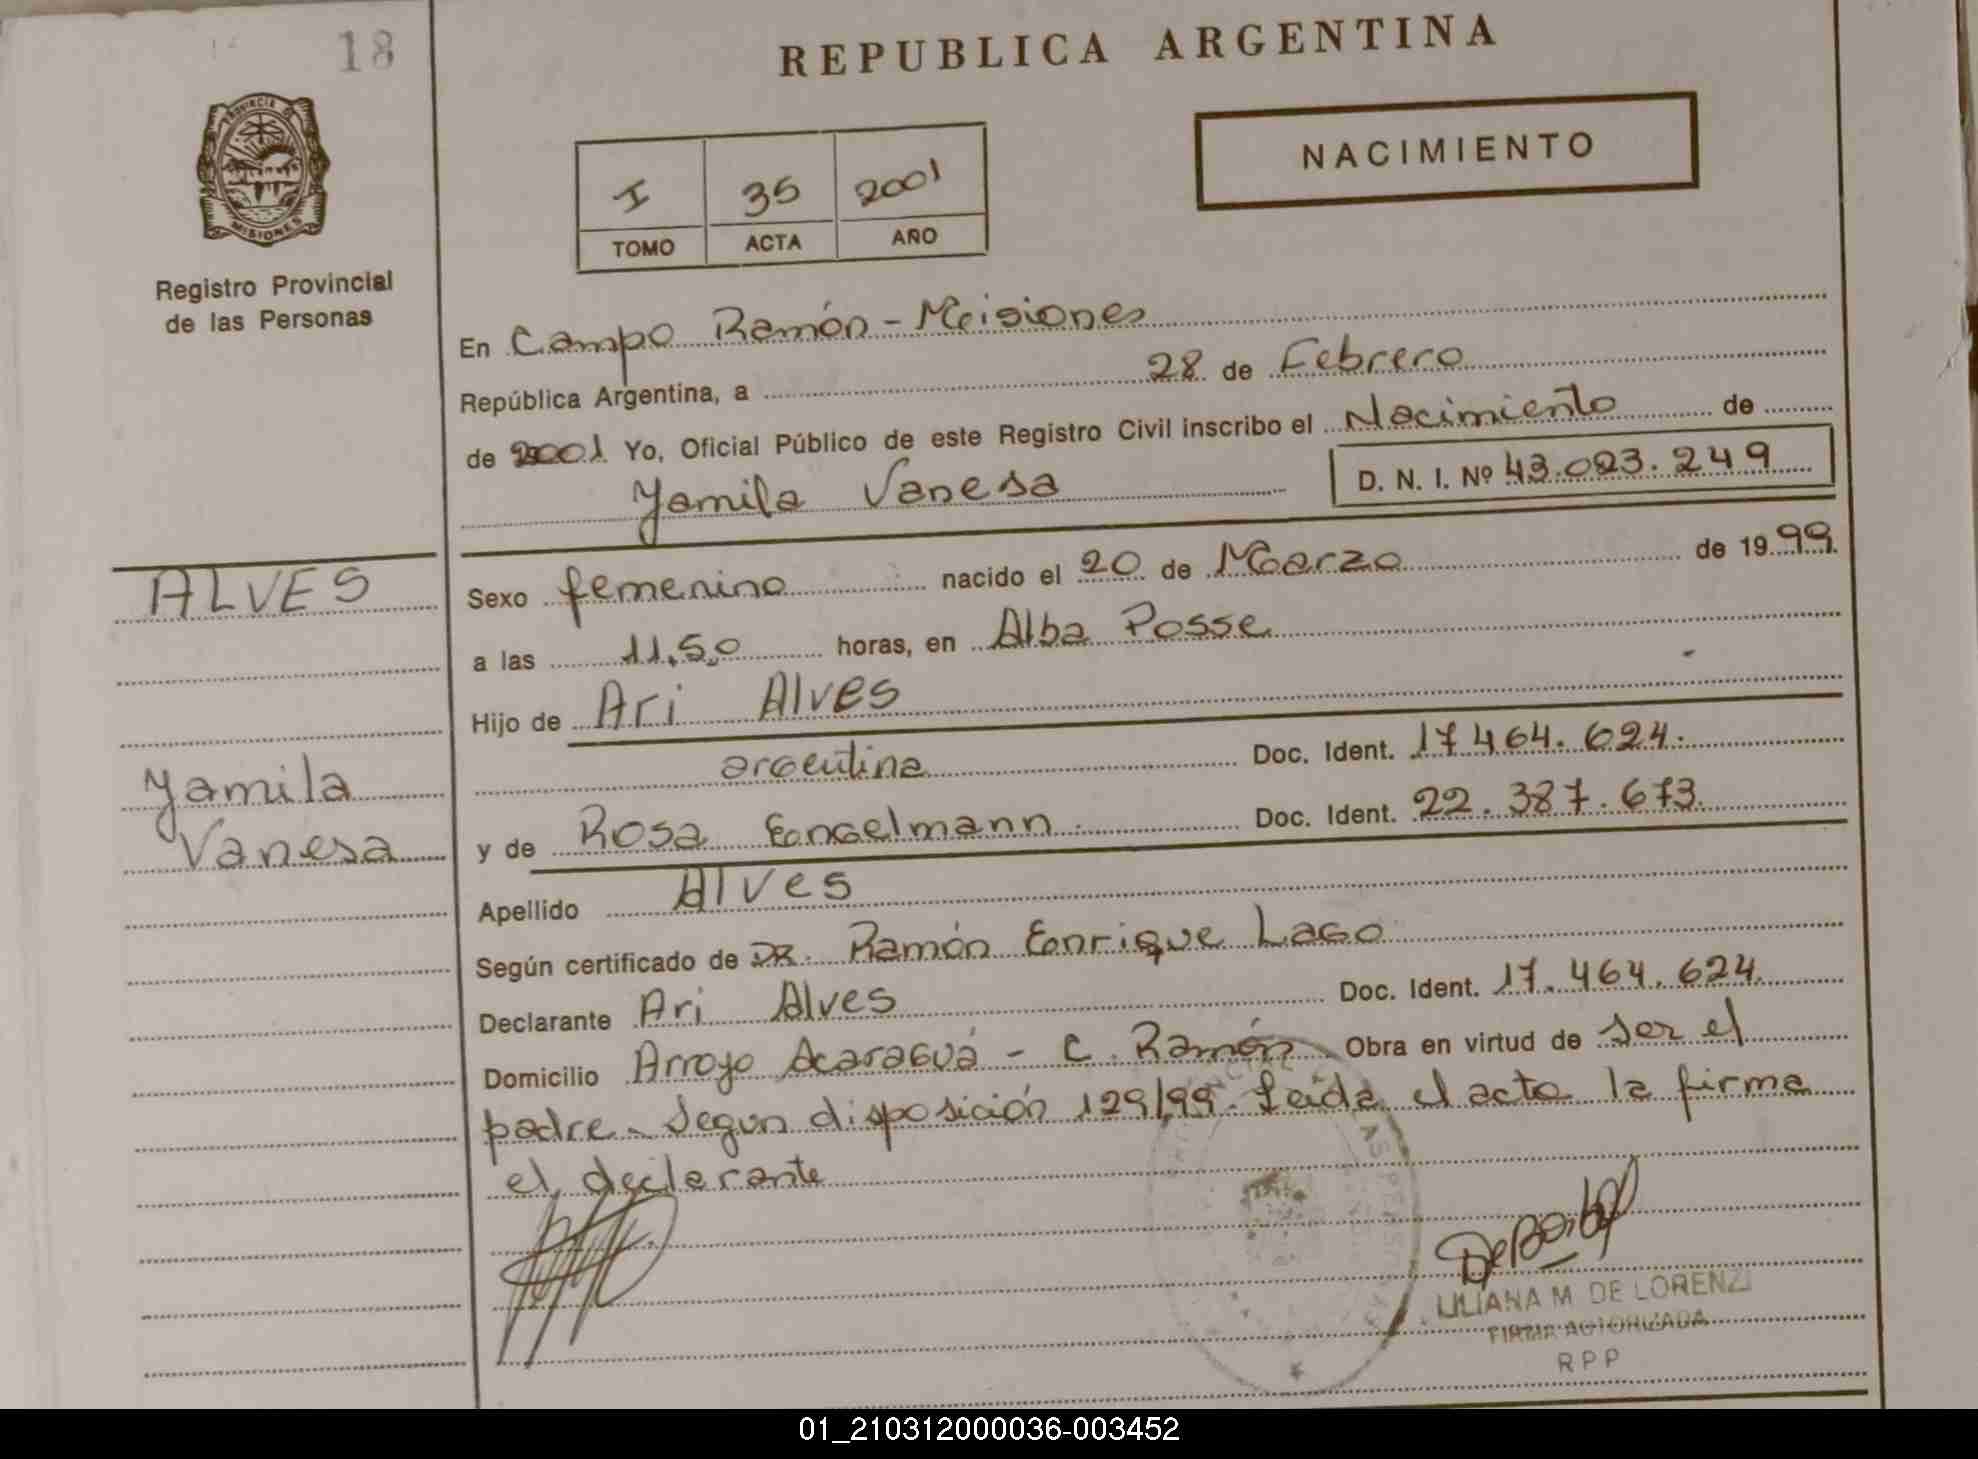 18
REPUBLICA ARGENTINA
PROVINCIA D
MISIONES
Registro Provincial
de las Personas
I 35 2001
TOMO ACTA AÑO
NACIMIENTO
En Campo Ramón - Misiones
República Argentina, a 28 de Febrero
de 2001 Yo, Oficial Público de este Registro Civil inscribo el Nacimiento de
Yamila Vanesa D. N. I. Nº 43.023.249
ALVES
Yamila
Vanesa
Sexo femenino nacido el 20 de Marzo de 1999.
a las 11,50 horas, en Alba Posse
Hijo de Ari Alves
argentina Doc. Ident. 17464.624.
y de Rosa Engelmann Doc. Ident. 22.387.673.
Apellido Alves
Según certificado de DR. Ramón Enrique Lago
Declarante Ari Alves Doc. Ident. 17.464.624.
Domicilio Arroyo Acaraguá - C. Ramón Obra en virtud de ser el
padre - Segun disposición 129/99. Leída el acta la firma
el declarante
LILIANA M. DE LORENZI
FIRMA AUTORIZADA
RPP
01_210312000036-003452